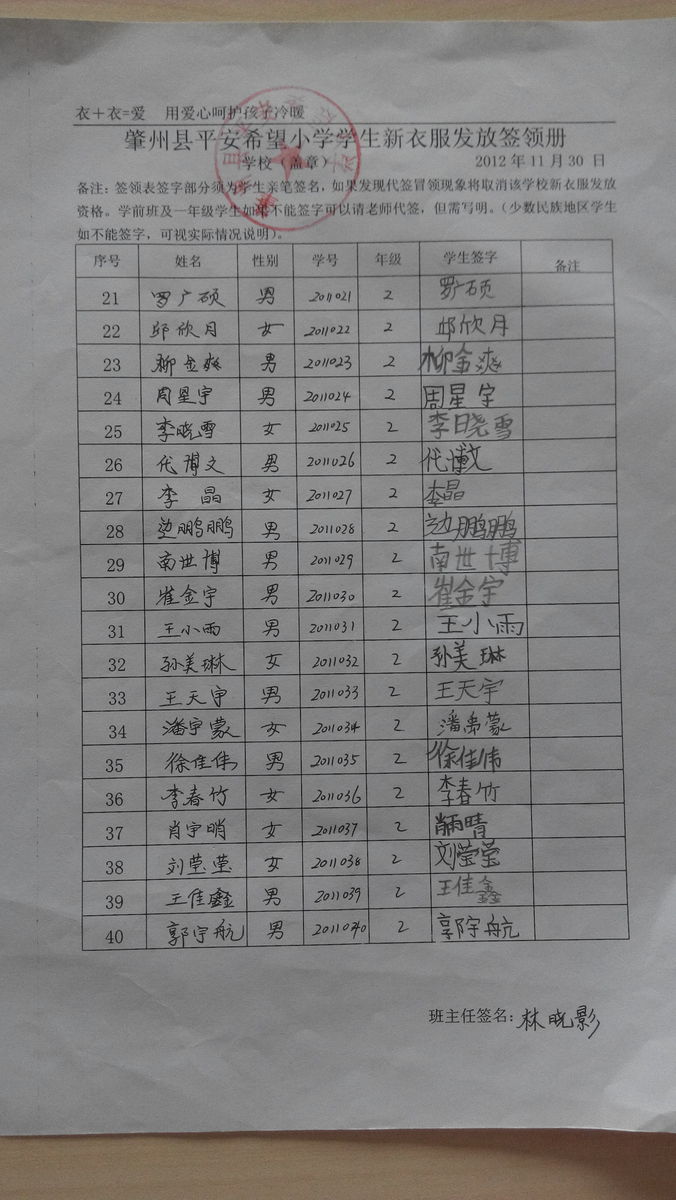 衣＋衣=爱 用爱心呵护孩子冷暖
肇州县平安希望小学学生新衣服发放签领册
学校（盖章） 2012年11月30日
备注：签领表签字部分须为学生亲笔签名，如果发现代签冒领现象将取消该学校新衣服发放
资格。学前班及一年级学生如果不能签字可以请老师代签，但需写明。（少数民族地区学生
如不能签字，可视实际情况说明）。
序号 姓名 性别 学号 年级 学生签字 备注
21 罗广硕 男 2011021 2 罗广硕
22 邱欣月 女 2011022 2 邱欣月
23 柳金爽 男 2011023 2 柳金爽
24 周星宇 男 2011024 2 周星宇
25 李晓雪 女 2011025 2 李晓雪
26 代博文 男 2011026 2 代博文
27 李晶 女 2011027 2 李晶
28 边鹏鹏 男 2011028 2 边鹏鹏
29 南世博 男 2011029 2 南世博
30 崔金宇 男 2011030 2 崔金宇
31 王小雨 男 2011031 2 王小雨
32 孙美琳 女 2011032 2 孙美琳
33 王天宇 男 2011033 2 王天宇
34 潘宇蒙 女 2011034 2 潘禹蒙
35 徐佳伟 男 2011035 2 徐佳伟
36 李春竹 女 2011036 2 李春竹
37 肖宇明 女 2011037 2
38 刘莹莹 女 2011038 2 刘莹莹
39 王佳鑫 男 2011039 2 王佳鑫
40 郭宇航 男 2011040 2 郭宇航
班主任签名：林晓影